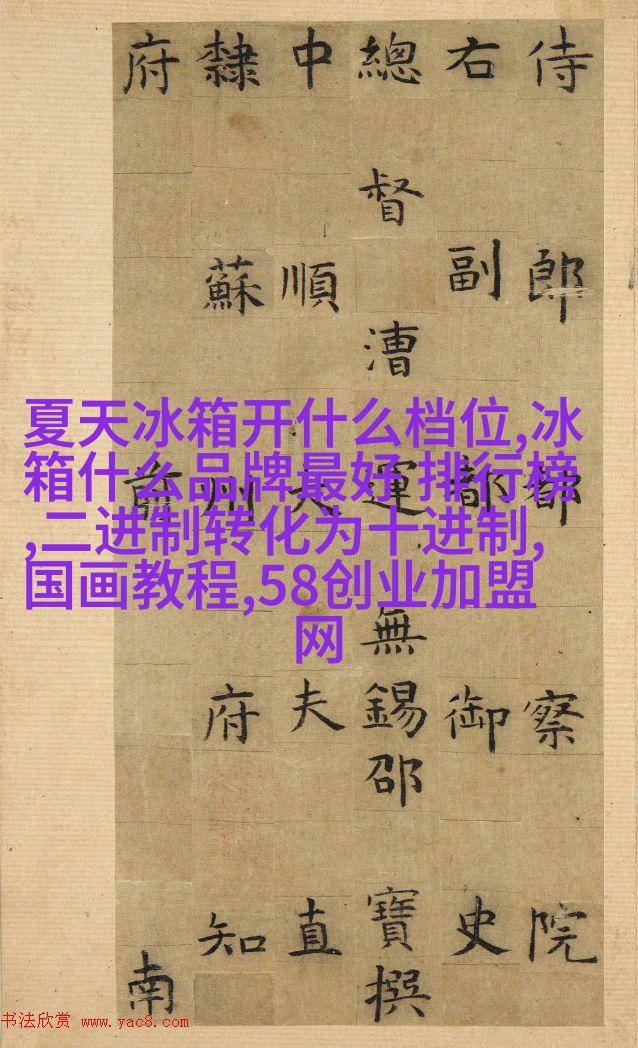 侍郎都察院
右副都御史
總督漕運無錫邵寶撰
中順大夫直
隸蘇州府知
府前南
夏天冰箱开什么档位,冰
箱什么品牌最好 排行榜
,二进制转化为十进制,
国画教程,58创业加盟
网
书法欣赏 www.yac8.com